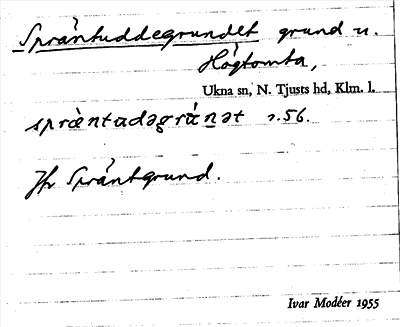 Spräntuddegrundet grund u.
Högtomta,
Ukna sn, N. Tjusts hd, Klm. l.
spräntadəgrúnət s. 56.
Jfr Spräntgrund.
Ivar Modéer 1955